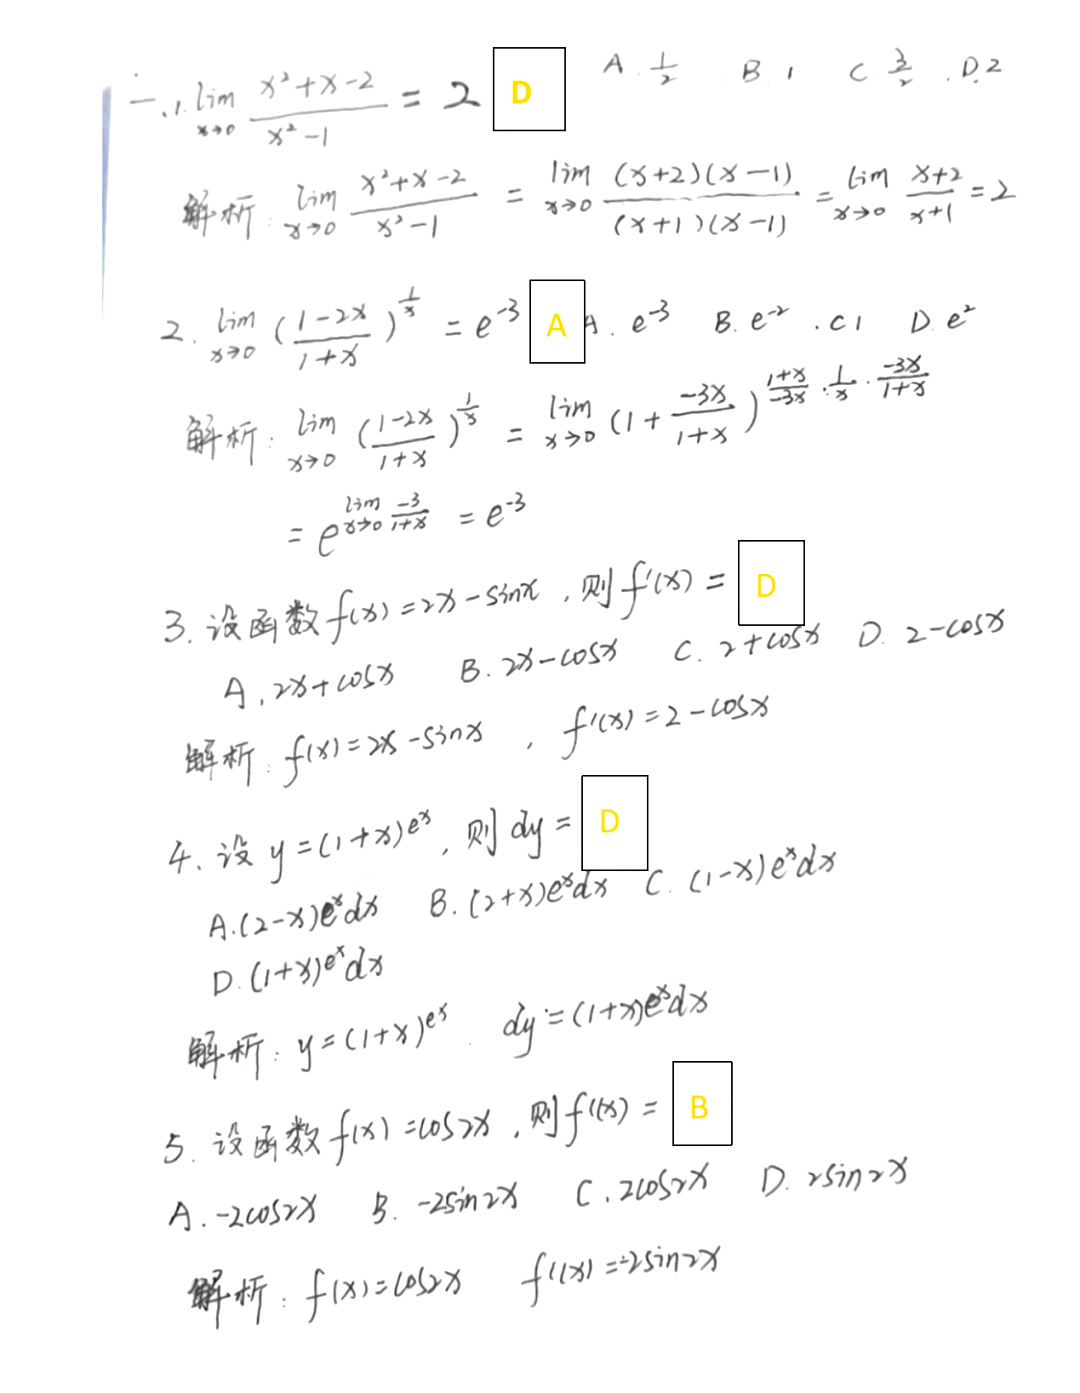 一.1. lim x→0 (x²+x-2)/(x²-1) = 2 D A. 1/2 B. 1 C 3/2 . D. 2
解析: lim x→0 (x²+x-2)/(x²-1) = lim x→0 (x+2)(x-1)/(x+1)(x-1) = lim x→0 (x+2)/(x+1) = 2
2. lim x→0 ((1-2x)/(1+x))^(1/x) = e^-3 A A. e^-3 B. e^-2 . C 1 D. e²
解析: lim x→0 ((1-2x)/(1+x))^(1/x) = lim x→0 (1 + (-3x)/(1+x))^((1+x)/(-3x) · 1/x · (-3x)/(1+x))
= e^(lim x→0 (-3)/(1+x)) = e^-3
3. 设函数 f(x) = 2x - sinx , 则 f'(x) = D
A. 2x+cosx B. 2x-cosx C. 2+cosx D. 2-cosx
解析: f(x) = 2x - sinx , f'(x) = 2 - cosx
4. 设 y = (1+x)e^x , 则 dy = D
A. (2-x)e^x dx B. (2+x)e^x dx C. (1-x)e^x dx
D. (1+x)e^x dx
解析: y = (1+x)e^x . dy = (1+x)e^x dx
5. 设函数 f(x) = cos2x , 则 f'(x) = B
A. -2cos2x B. -2sin2x C. 2cos2x D. 2sin2x
解析: f(x) = cos2x f'(x) = -2sin2x